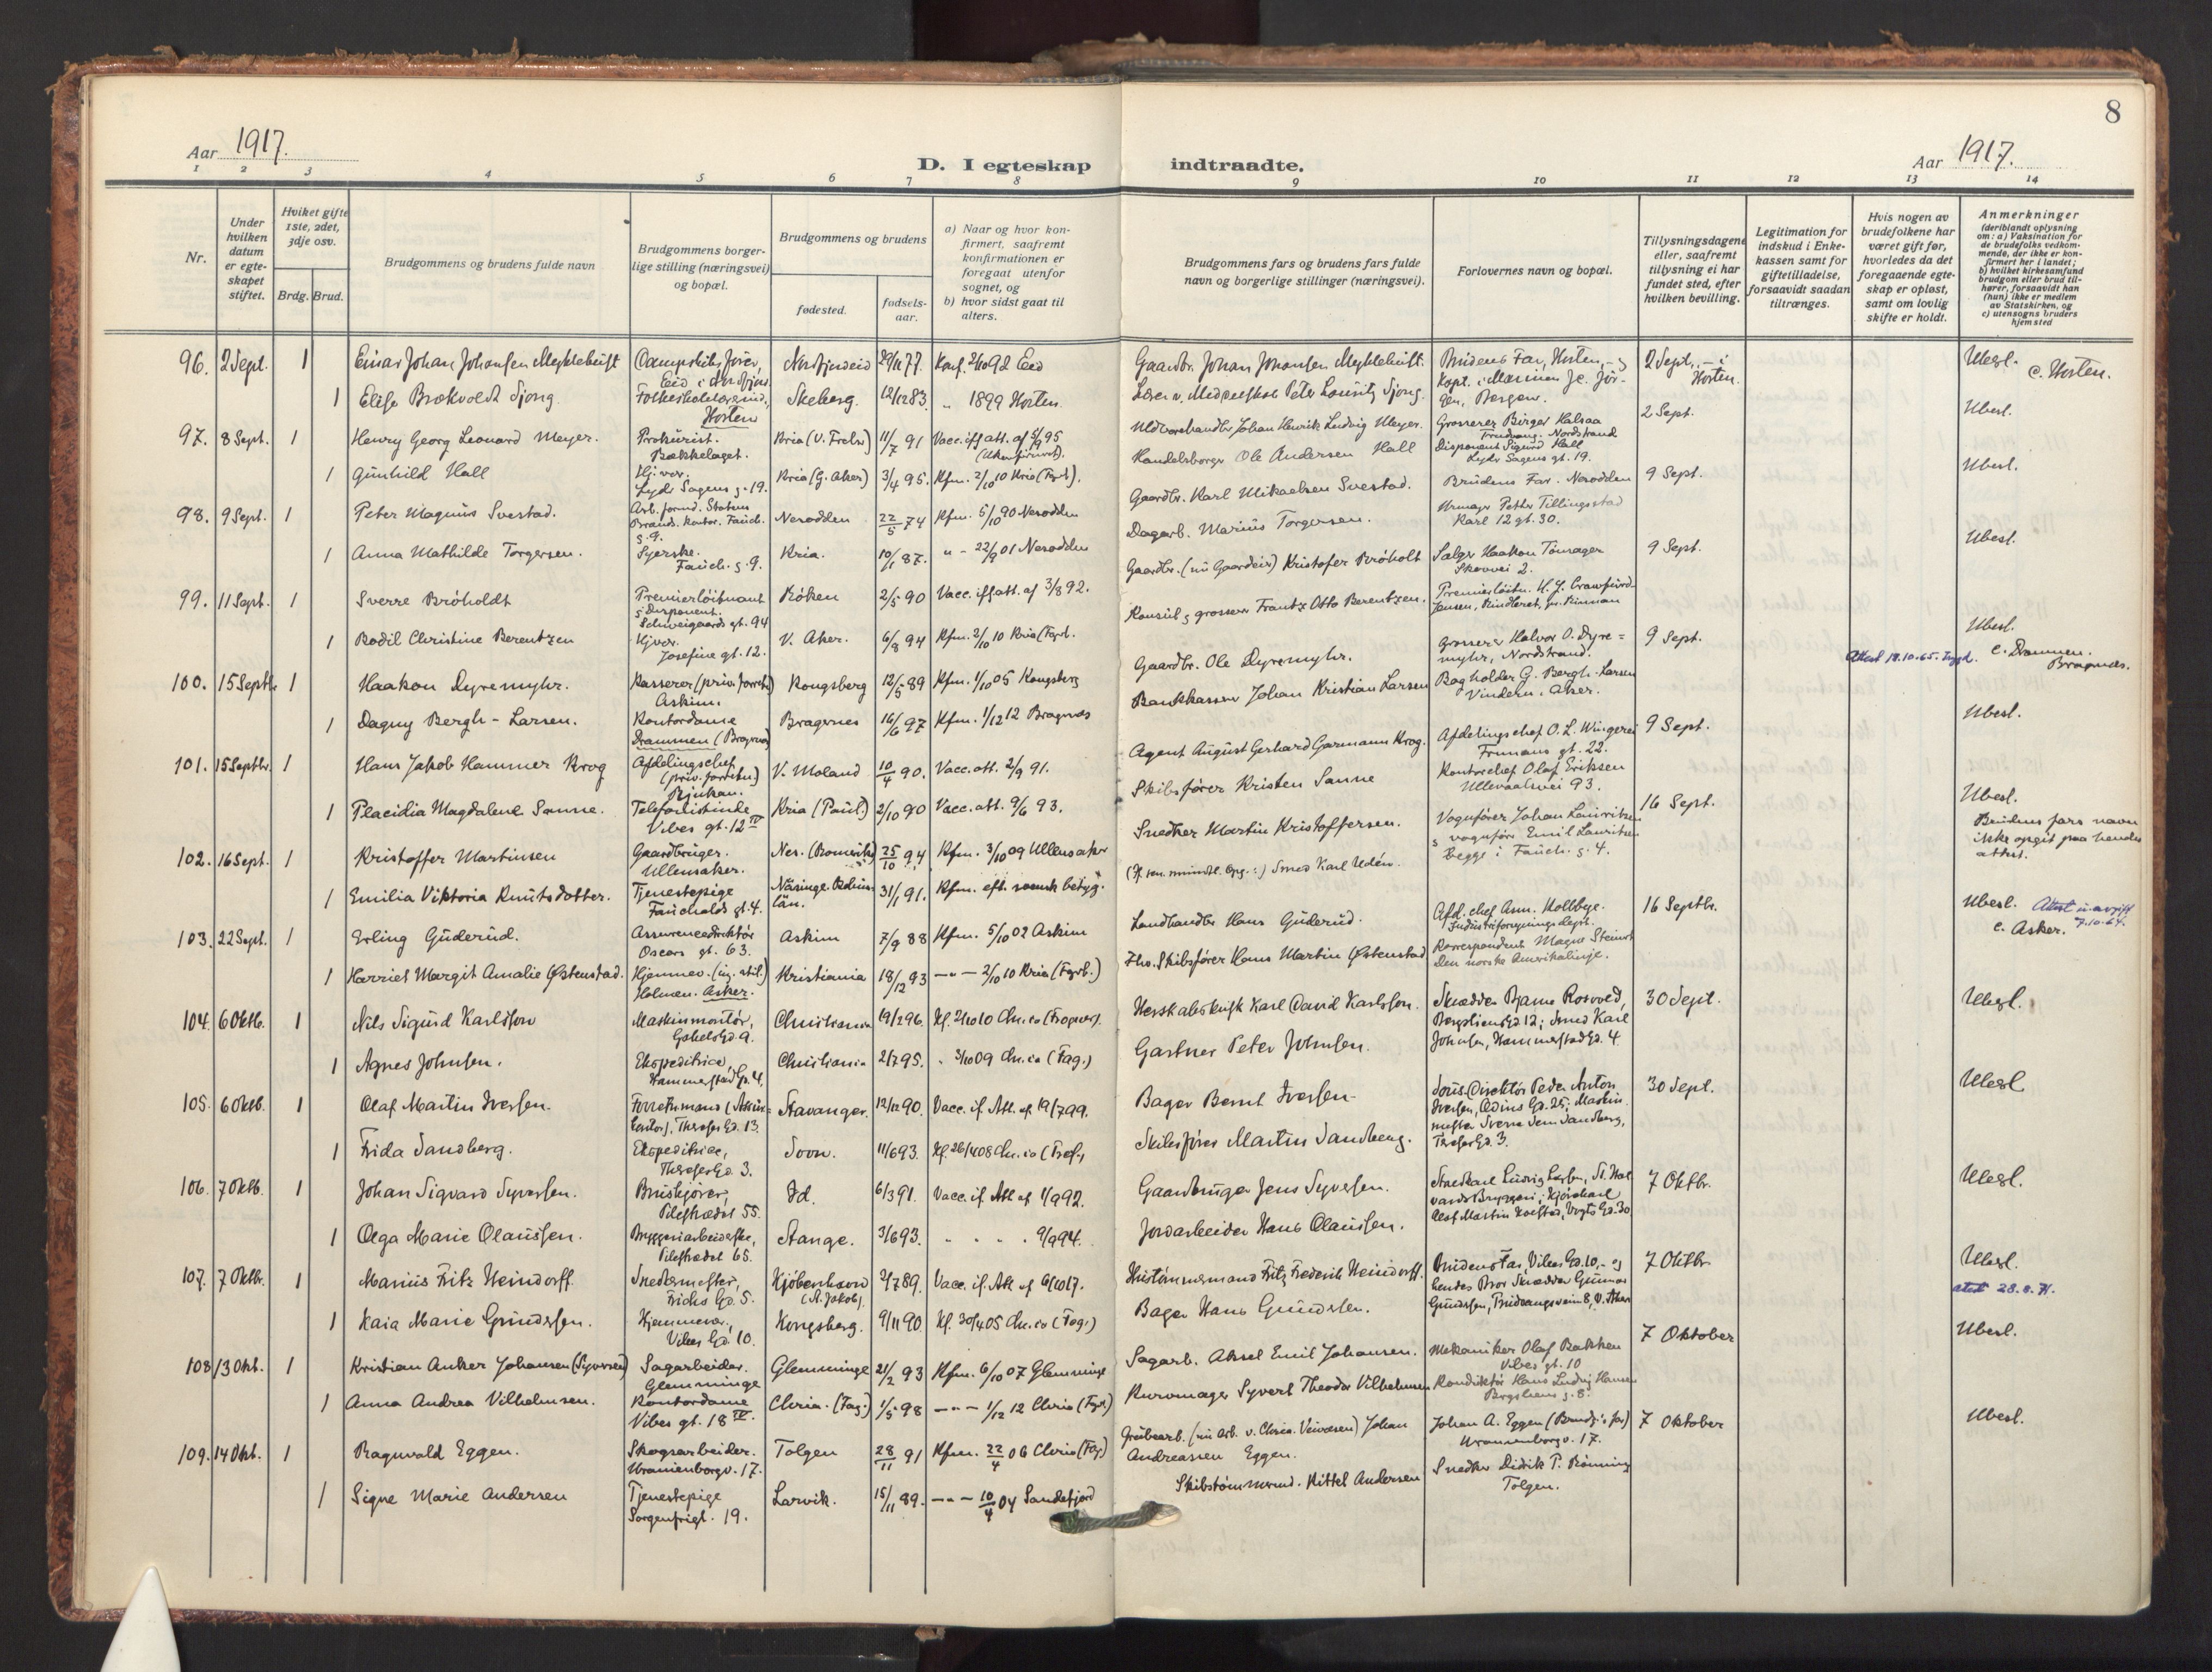 8
Aar 1917.
D. I egteskap indtraadte.
Aar 1917.
1 2 3 4 5 6 7 8 9 10 11 12 13 14
Nr.
Under hvilken datum er egteskapet stiftet.
Hviket gifte 1ste, 2det, 3dje osv.
Brdg. Brud.
Brudgommens og brudens fulde navn
Brudgommens borgerlige stilling (næringsvei) og bopæl.
Brudgommens og brudens
fødested.
fødselsaar.
a) Naar og hvor konfirmert, saafremt konfirmationen er foregaat utenfor sognet, og
b) hvor sidst gaat til alters.
Brudgommens fars og brudens fars fulde navn og borgerlige stillinger (næringsvei).
Forlovernes navn og bopæl.
Tillysningsdagene eller, saafremt tillysning ei har fundet sted, efter hvilken bevilling.
Legitimation for indskud i Enkekassen samt for giftetilladelse, forsaavidt saadan tiltrænges.
Hvis nogen av brudefolkene har været gift før, hvorledes da det foregaaende egteskap er opløst, samt om lovlig skifte er holdt.
Anmerkninger (deriblandt oplysning om: a) Vaksination for de brudefolks vedkommende, der ikke er konfirmert her i landet; b) hvilket kirkesamfund brudgom eller brud tilhører, forsaavidt han (hun) ikke er medlem av Statskirken, og c) utensogns bruders hjemsted
96. 2 Sept. 1 Einar Johan Johansen Myklebust Dampskibsfører, Eid i Nordfjord Nordfjordeid 29/11 77. Konf. 2/10 92 Eid Gaardbr. Johan Johansen Myklebust. Brudens Far, Horten, 2 Sept., i Horten. Ubesl. c. Horten.
1 Elise Brækvoldt Sjong Folkeskolelærerind., Horten Skeberg. 12/12 83 " 1899 Horten. Peter Lauritz Sjong. Bergen.
97. 8 Sept. 1 Henry Georg Leonard Meyer. Prokurist. Bækkelaget. Kria (V. Frels) 11/7 91 Vacc. iflg att. af 3/9 95 (Ukonfirmert). Uldvarehandler Johan Henrik Ludvig Meyer. Grosserer Birger Halsaa Nordstrand 2 Sept. Ubesl.
1 Gunhild Hall Hjvær. Lyder Sagens g. 19. Kria (G. Aker) 3/4 95. Kfm. 2/10 10 Kria (Fgrb). Handelsborger Ole Andersen Hall Disponent Sigurd Hall Lyder Sagens gt. 19.
98. 9 Sept. 1 Peter Magnus Svestad. Arb. formd. Statens Brands. kontor. Fauch. g. 9. Nesodden 22/5 74 Kfm. 5/10 90 Nesodden Gaardbr. Karl Mikaelsen Svestad. Brudens Far. Nesodden 9 Sept. Ubesl.
1 Anna Mathilde Torgersen. Syerske. Fauch. g. 9. Kria. 10/1 87. " - 22/9 01 Nesodden Dagarb. Marius Torgersen. Urmager Petter Tillingsstad Karl 12 gt. 30.
99. 11 Sept. 1 Sverre Bröholdt Premierløitnant & Disponent. Schweigaards gt. 94 Röken 2/5 90 Vacc. iflg att. af 3/8 92. Gaardbr. (nu Gaardeier) Kristofer Bröholt Sælger Haakon Tömager Skovvei 2. 9 Sept. Ubesl.
1 Bodil Christine Berentzen Hjvær. Josefine gt. 12. V. Aker. 6/8 94 Kfm. 2/10 10 Kria (Fgrb. Konsul & grosserer Frantz Otto Berentzen. Premierløitn. H. J. Crawfurd-Jensen,
100. 15 Septbr 1 Haakon Dyremyhr. Kasserer (priv. forretn.) Askim. Kongsberg 12/5 89 Kfm. 1/10 05 Kongsberg Gaardbr. Ole Dyremyhr. Grosserer Halvor O. Dyremyhr, Nordstrand. 9 Sept. Attest 18.10.65. Ubesl. c. Drammen. Bragernes.
1 Dagny Bergh-Larsen. Kontordame Drammen (Bragernæs) Bragernes 16/6 97 Kfm. 1/12 12 Bragernæs Bankkasserer Johan Kristian Larsen Bogholder G. Bergh-Larsen Vindern, Aker.
101. 15 Septbr. 1 Hans Jakob Hammer Krog Afdelingschef (priv. forretn.) Rjukan. V. Moland 10/4 90. Vacc. att. 2/9 91. Agent August Gerhard Garmann Krog. Afdelingschef O. L. Wingerei Frunans gt. 22. 9 Sept. Ubesl.
1 Placidia Magdalene Sanne. Telefonistinde Vibes gt. 12 IV Kria (Paul) 2/10 90 Vacc. att. 9/6 93. Skibsfører Kristen Sanne Kontorchef Olaf Eriksen Ullevaalsvei 93.
102. 16 Sept. 1 Kristoffer Martinsen Gaardbruger. Ullensaker. Nes. (Romerike) 25/10 94 Kfm. 3/10 09 Ullensaker Snedker Martin Kristoffersen. Vognfører Johan Lauritsen & vognfører Emil Lauritsen Begge i Fauch. g. 4. 16 Sept. Ubesl. Brudens fars navn ikke opgit paa hendes attest.
1 Emilia Viktoria Knutsdotter. Tjenestepige Fauchalds gt. 4. Näsinge. län. 31/1 91. Kfm. eft. svensk betyg. Smed Karl Udén.
103. 22 Sept. 1 Erling Guderud. Assurencedirektør Oscars gt. 63. Askim 7/9 88 Kfm. 5/10 02 Askim Landhandler Hans Guderud. Afd. chef Arn. Hollbye. 16 Septbr. Ubesl. c. Asker. 7.10.64.
1 Harriet Margit Amalie Østenstad. Hjemmev. (ing. stil.) Holmen. Asker. Kristiania 18/12 93 —"— 2/10 10 Kria (Fgrb.) Fhv. Skibsfører Hans Martin Østenstad Korrespondent Magnus Steinert Den norske Amerikalinje.
104. 6 Oktb. 1 Nils Sigurd Karlsson Maskinmontør, Gabelsgd. 9. Christiania 19/2 96. Kf. 2/10 10 Chr.ia (Frogner). Herskabskusk Karl David Karlsson. Skrædder Bjarne Rosvold, Bergsliensgd 12; Smed Karl Johnsen, Hammerstadgd. 4 30 Sept. Ubesl.
1 Agnes Johnsen. Ekspeditrice, Hammerstadgd. 4. Christiania 2/7 95. " 3/10 09 Chr.ia (Fag.) Gartner Peter Johnsen.
105. 6 Oktb. 1 Olaf Martin Iversen. Forretnmand (Assurkontor), Theresesgd. 13. Stavanger. 12/12 90. Vacc. if. Att. af 19/7 99. Bager Bernt Iversen. Direktør Peder Anton Iversen, Odins Gd. 25; Sverre Jens Sandberg, Theresesgd. 3. 30 Sept. Ubesl
1 Frida Sandberg. Ekspeditrice, Theresesgd. 3. Soon. 11/6 93. Kf. 26/4 08 Chr.ia (Tref.) Skibsfører Martin Sandberg.
106. 7 Oktb. 1 Johan Sigvard Syversen. Bruskjører, Pilestrædet 55. Id. 6/3 91. Vacc. if. Att af 1/9 92. Gaardbruger Jens Syversen. Ludvig Larsen, St. Halvards Bryggeri; Kjørekarl Martin Vogts Gd. 30 7 Oktbr. Ubesl.
1 Olga Marie Olaussen. Bryggeriarbeiderske, Pilestrædet 65. Stange. 3/6 93. " " " " 9/9 94. Jordarbeider Hans Olaussen.
107. 7 Oktbr. 1 Marius Fritz Heindorff Snedkermester, Frichs Gd. 5. Kjøbenhavn (St. Jakob). 2/7 89. Vacc. if. Att af 6/10 17. Hustømmermand Fritz Frederik Heindorff. Brudens Far, Vibes Gd. 10, og hendes Bror Skrædder Gunnar Gundersen, Trudvangsveien 8, V. Aker 7 Oktbr. Ubesl. attest 28.8.71.
1 Kaia Marie Gundersen. Hjemmevær., Vibes Gd. 10. Kongsberg. 9/11 90. Kf. 30/4 05 Chr.ia (Fag.) Bager Hans Gundersen.
108 13 Okt. 1 Kristian Anker Johansen (Syversen) Sagarbeider. Glemminge Glemminge 21/2 93 Kfm. 6/10 07 Glemminge Sagarb. Aksel Emil Johansen. Mekaniker Olaf Bakken Vibes gt. 10 7 Oktober Ubesl.
1 Anna Andrea Vilhelmsen. Kontordame Vibes gt. 18 IV. Chria. (Fag.) 1/5 98 —"— 1/12 12 Chria (Fgrb) Kurvmager Syvert Theodor Vilhelmsen Konduktør Hans Ludvig Hansen Bergsliens g. 8.
109. 14 Okt. 1 Ragnvald Eggen. Skogsarbeider. Uranienborgv. 17. Tolgen 28/11 91 Kfm. 22/4 06 Chria (Fag) Grubearb. (nu arb. v. Chria. Veivæsen) Johan Andreassen Eggen. Johan A. Eggen (Brudg.'s far) Uranienborgv. 17. 7 Oktober Ubesl.
1 Signe Marie Andersen Tjenestepige Sorgenfrigt. 19. Larvik. 15/11 89. —"— 10/4 04 Sandefjord Skibstømmermd. Kittel Andersen Snedker Didrik P. Rønning Tolgen.